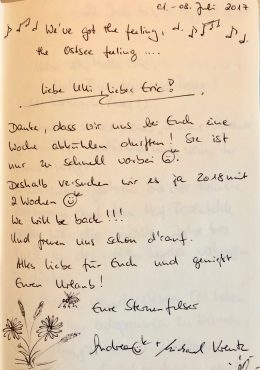 01. - 08. Juli 2017
We've got the feeling,
the Ostsee feeling ....
Liebe Ulli, lieber Eric!
Danke, dass wir uns bei Euch eine
Woche abkühlen durften! Sie ist
nur zu schnell vorbei
Deshalb versuchen wir es ja 2018 mit
2 Wochen
We will be back!!!
Und freuen uns schon d'rauf.
Alles liebe für Euch und genießt
Euren Urlaub!
Eure Sternenfelser
Andrea + Michael